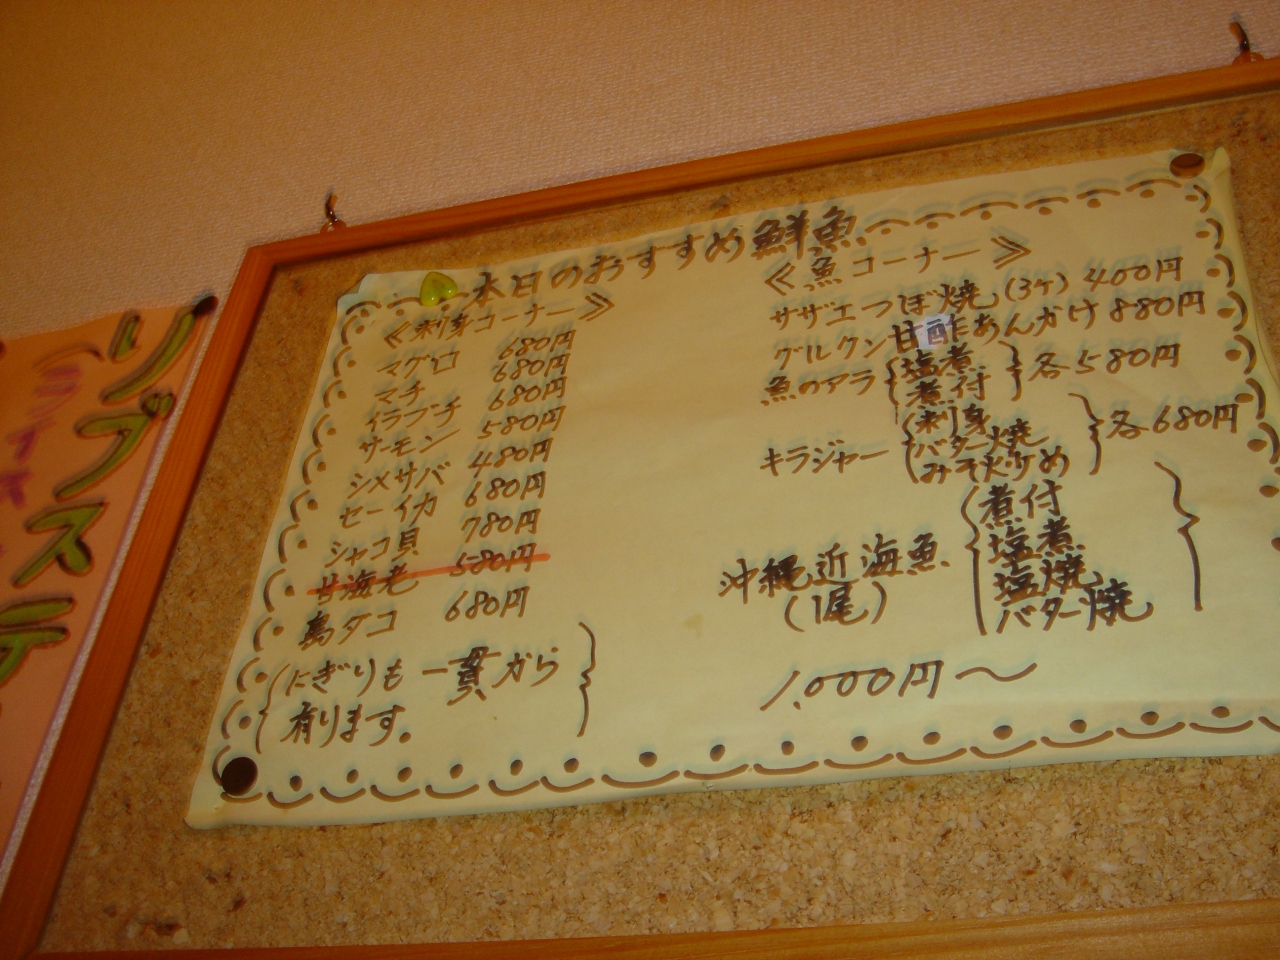 本日のおすすめ鮮魚
≪刺身コーナー≫
マグロ 680円
マチ 680円
イラブチ 680円
サーモン 580円
シメサバ 480円
セーイカ 680円
シャコ貝 780円
甘海老 580円
島タコ 680円
にぎりも一貫から
有ります。
≪魚コーナー≫
サザエつぼ焼(3ケ) 400円
グルクン甘酢あんかけ 880円
魚のアラ 塩煮 煮付 各580円
キラジャー 刺身 バター焼 みそ炒め 各680円
沖縄近海魚
(1尾)
煮付
塩煮
塩焼
バター焼
1.000円〜
リブステ